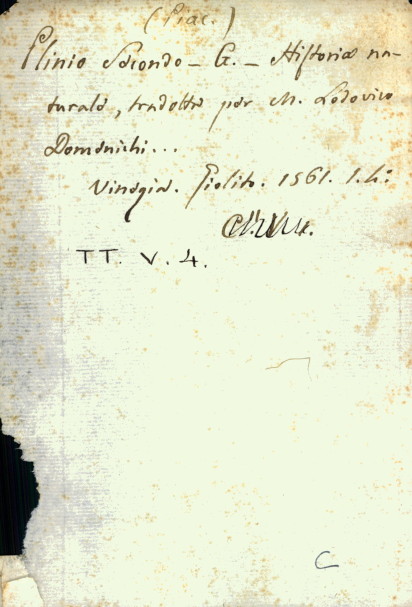 (Piac.)
Plinio Secondo - G. - Historia na-
turale, tradotta per M. Lodovico
Domenichi...
Vinegia. Giolito. 1561. 1. 4°
TT. V. 4.
C